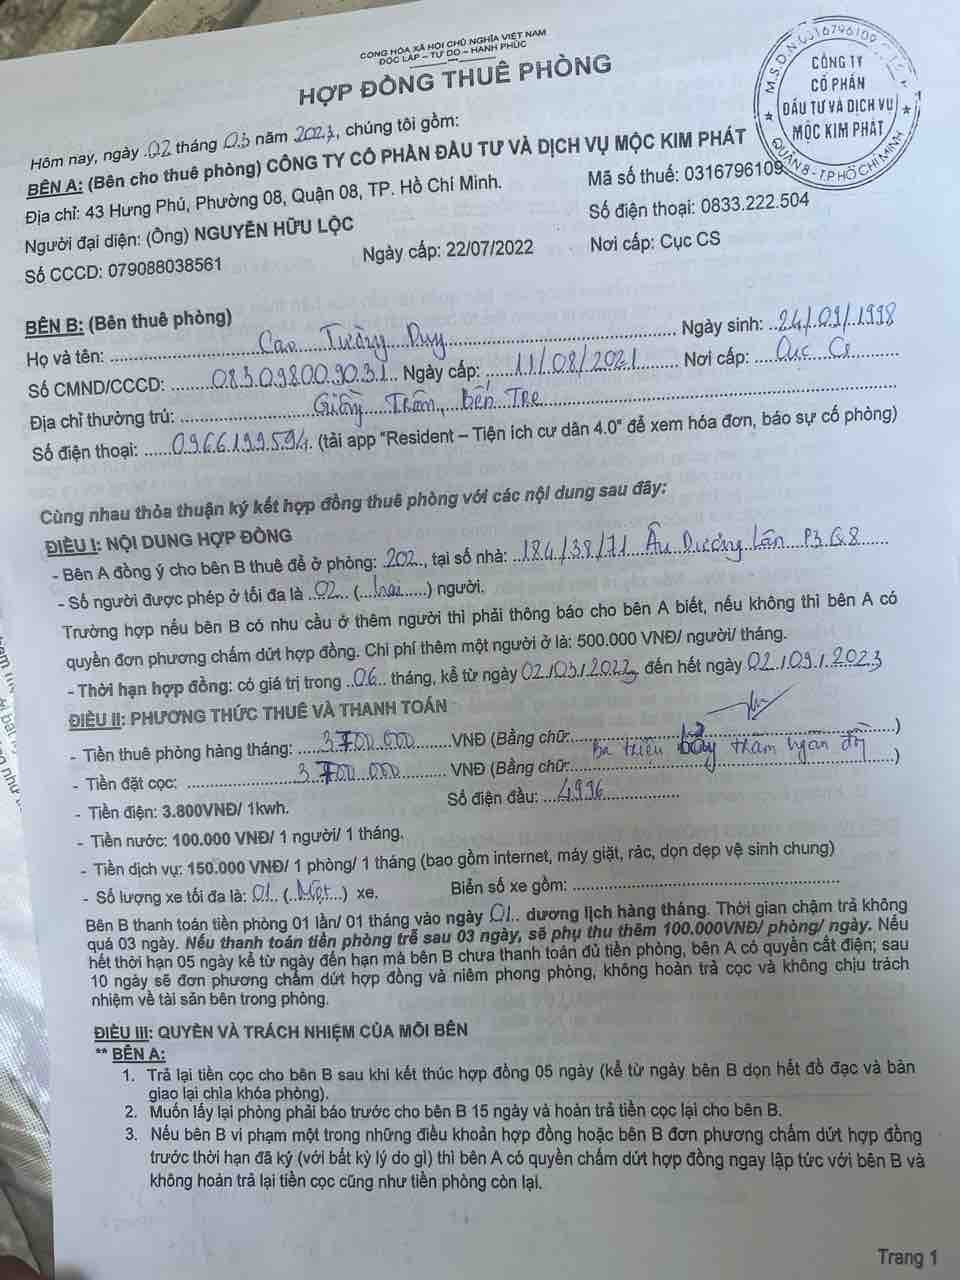 CỘNG HÒA XÃ HỘI CHỦ NGHĨA VIỆT NAM
ĐỘC LẬP – TỰ DO – HẠNH PHÚC
HỢP ĐỒNG THUÊ PHÒNG
M.S.D.N: 0316796109
CÔNG TY
CỔ PHẦN
ĐẦU TƯ VÀ DỊCH VỤ
MỘC KIM PHÁT
QUẬN 8 - T.P HỒ CHÍ MINH
Hôm nay, ngày 02 tháng 03 năm 2023, chúng tôi gồm:
BÊN A: (Bên cho thuê phòng) CÔNG TY CỔ PHẦN ĐẦU TƯ VÀ DỊCH VỤ MỘC KIM PHÁT
Địa chỉ: 43 Hưng Phú, Phường 08, Quận 08, TP. Hồ Chí Minh. Mã số thuế: 0316796109
Người đại diện: (Ông) NGUYỄN HỮU LỘC Số điện thoại: 0833.222.504
Số CCCD: 079088038561 Ngày cấp: 22/07/2022 Nơi cấp: Cục CS
BÊN B: (Bên thuê phòng)
Họ và tên: Cao Tường Duy Ngày sinh: 24/09/1998
Số CMND/CCCD: 083098009031 Ngày cấp: 11/08/2021 Nơi cấp: Cục Cs
Địa chỉ thường trú: Giồng Trôm, Bến Tre
Số điện thoại: 0966199594 (tải app "Resident – Tiện ích cư dân 4.0" để xem hóa đơn, báo sự cố phòng)
Cùng nhau thỏa thuận ký kết hợp đồng thuê phòng với các nội dung sau đây:
ĐIỀU I: NỘI DUNG HỢP ĐỒNG
- Bên A đồng ý cho bên B thuê để ở phòng: 202, tại số nhà: 184/38/71 Âu Dương Lân P3 Q8
- Số người được phép ở tối đa là 02 (hai) người.
Trường hợp nếu bên B có nhu cầu ở thêm người thì phải thông báo cho bên A biết, nếu không thì bên A có
quyền đơn phương chấm dứt hợp đồng. Chi phí thêm một người ở là: 500.000 VNĐ/ người/ tháng.
- Thời hạn hợp đồng: có giá trị trong 06 tháng, kể từ ngày 02/03/2023 đến hết ngày 02/09/2023
ĐIỀU II: PHƯƠNG THỨC THUÊ VÀ THANH TOÁN
- Tiền thuê phòng hàng tháng: 3.700.000 VNĐ (Bằng chữ: )
- Tiền đặt cọc: 3.700.000 VNĐ (Bằng chữ: Ba triệu bảy trăm ngàn đồng )
- Tiền điện: 3.800VNĐ/ 1kwh. Số điện đầu: 4996
- Tiền nước: 100.000 VNĐ/ 1 người/ 1 tháng.
- Tiền dịch vụ: 150.000 VNĐ/ 1 phòng/ 1 tháng (bao gồm internet, máy giặt, rác, dọn dẹp vệ sinh chung)
- Số lượng xe tối đa là: 01 (Một) xe. Biển số xe gồm:
Bên B thanh toán tiền phòng 01 lần/ 01 tháng vào ngày 01 dương lịch hàng tháng. Thời gian chậm trả không
quá 03 ngày. Nếu thanh toán tiền phòng trễ sau 03 ngày, sẽ phụ thu thêm 100.000VNĐ/ phòng/ ngày. Nếu
hết thời hạn 05 ngày kể từ ngày đến hạn mà bên B chưa thanh toán đủ tiền phòng, bên A có quyền cắt điện; sau
10 ngày sẽ đơn phương chấm dứt hợp đồng và niêm phong phòng, không hoàn trả cọc và không chịu trách
nhiệm về tài sản bên trong phòng.
ĐIỀU III: QUYỀN VÀ TRÁCH NHIỆM CỦA MỖI BÊN
** BÊN A:
1. Trả lại tiền cọc cho bên B sau khi kết thúc hợp đồng 05 ngày (kể từ ngày bên B dọn hết đồ đạc và bàn
giao lại chìa khóa phòng).
2. Muốn lấy lại phòng phải báo trước cho bên B 15 ngày và hoàn trả tiền cọc lại cho bên B.
3. Nếu bên B vi phạm một trong những điều khoản hợp đồng hoặc bên B đơn phương chấm dứt hợp đồng
trước thời hạn đã ký (với bất kỳ lý do gì) thì bên A có quyền chấm dứt hợp đồng ngay lập tức với bên B và
không hoàn trả lại tiền cọc cũng như tiền phòng còn lại.
Trang 1